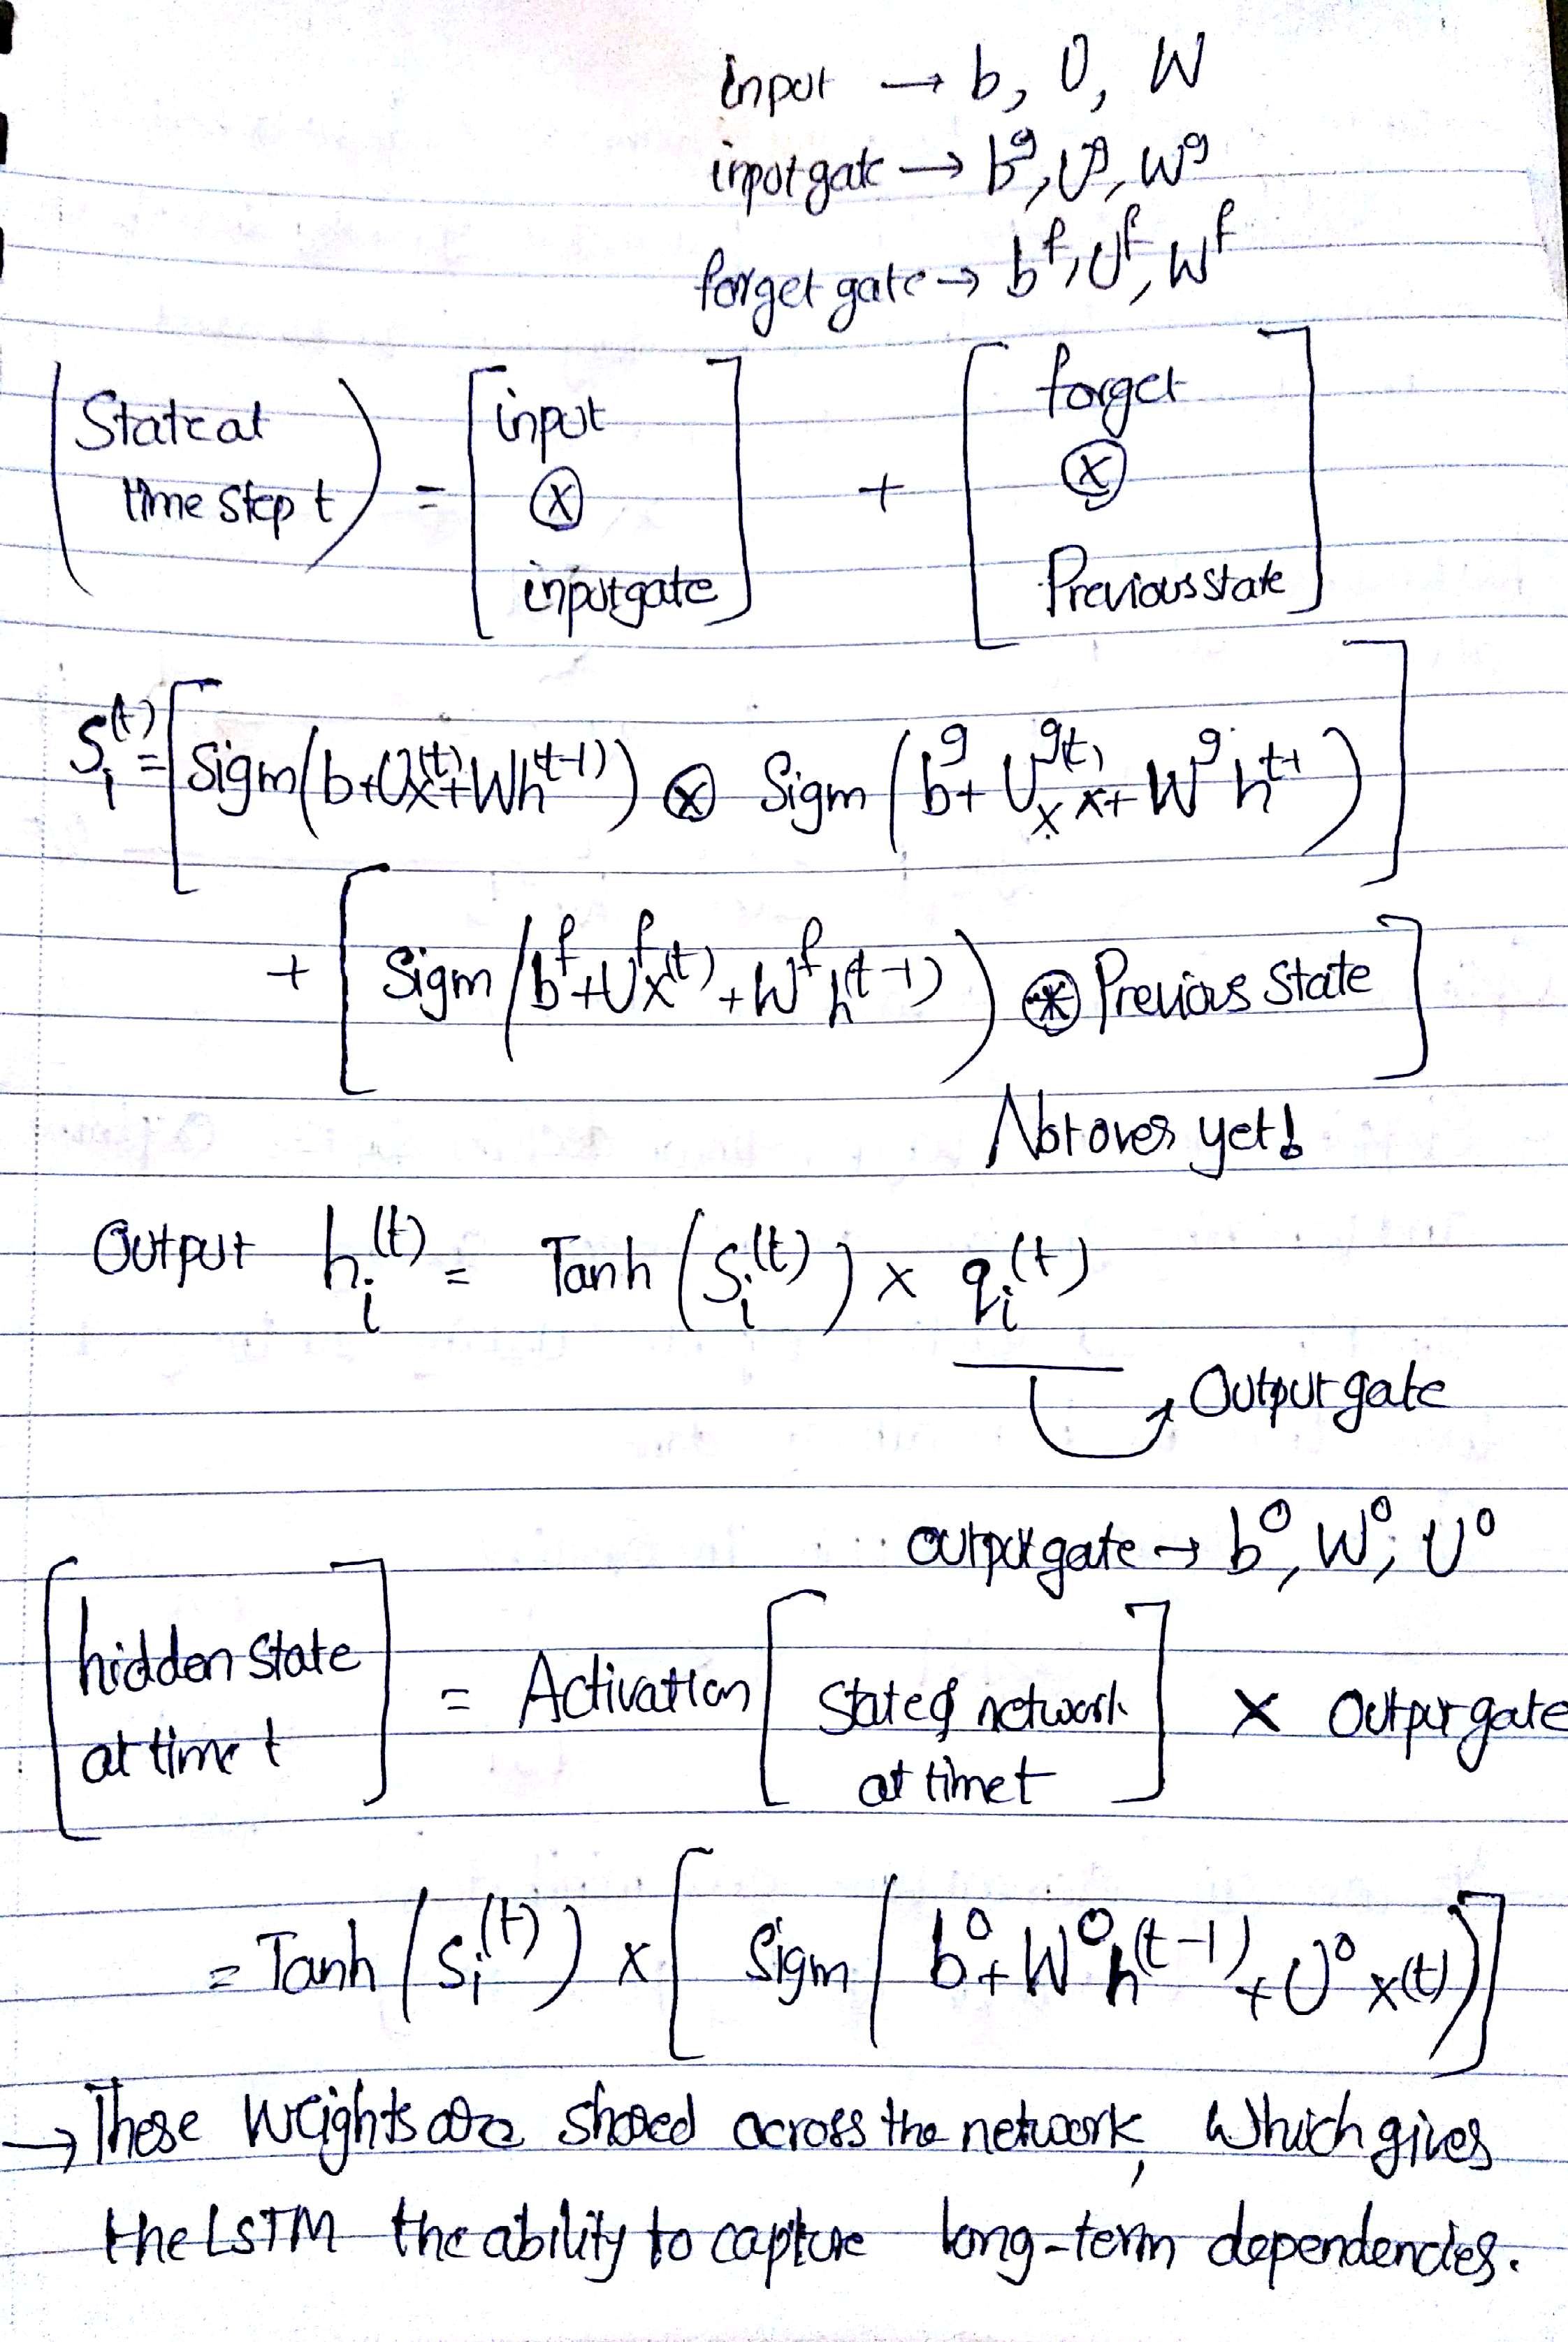 input → b, U, W
input gate → b^g, U^g, W^g
forget gate → b^f, U^f, W^f
(State at time step t) = [input ⊗ input gate] + [forget ⊗ Previous state]
S_i^(t) = [Sigm(b+Ux^(t)+Wh^(t-1)) ⊗ Sigm(b^g + U^g_x x^(t) + W^g h^t-1)]
+ [Sigm(b^f+U^f x^(t)+W^f h^(t-1)) ⊛ Previous State]
Not over yet!
Output h_i^(t) = Tanh(S_i^(t)) × q_i^(t)
Output gate
output gate → b^o, W^o, U^o
[hidden state at time t] = Activation [State of network at time t] × Output gate
= Tanh(S_i^(t)) × [Sigm(b^o + W^o h^(t-1) + U^o x(t))]
→ These weights are shared across the network, Which gives
the LSTM the ability to capture long-term dependencies.